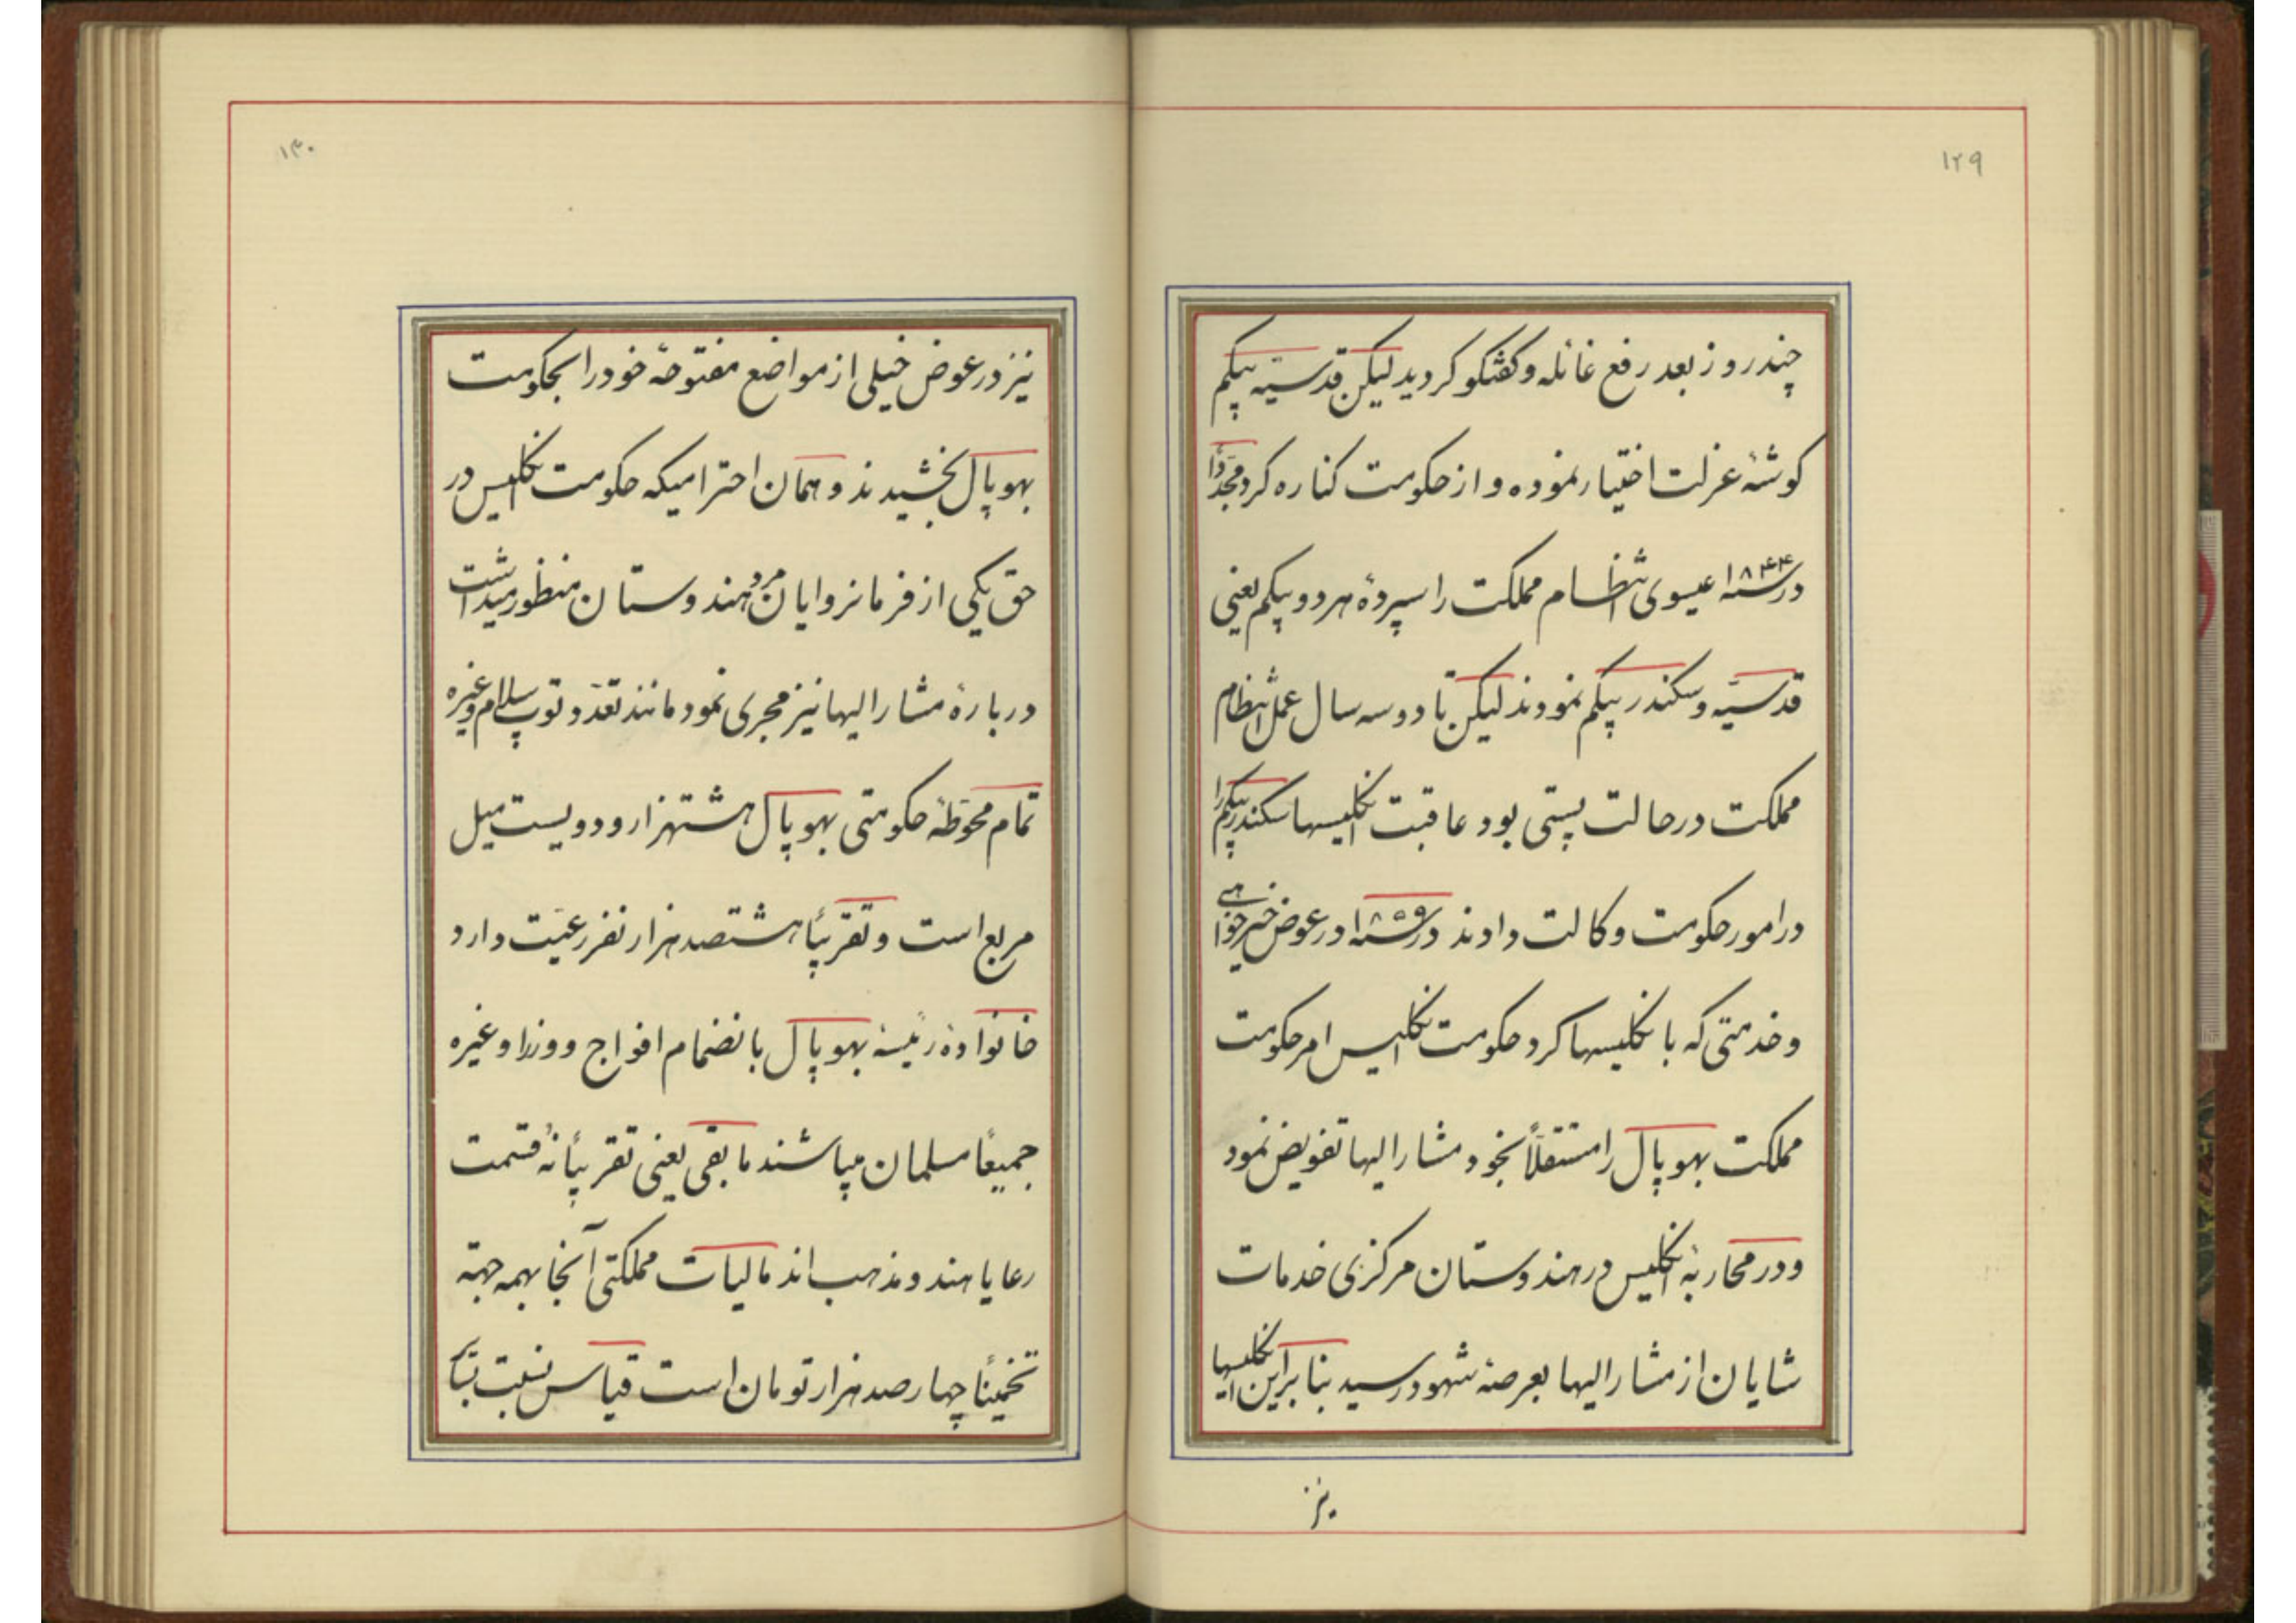 ۱۲۹
چند روز بعد رفع غائله و کفتکو کردید لیکن قدسیّه بیکم
کوشهٔ عزلت اختیار نموده و از حکومت کناره کرد مجدّداً
در سنه ۱۸۴۴ عیسوی انتظام مملکت را سپردهٔ هر دو بیکم یعنی
قدسیّه و سکندر بیکم نمودند لیکن تا دو سه سال عمل انتظام
مملکت در حالت پستی بود عاقبت انکلیسها سکندر بیکم را
در امور حکومت وکالت دادند در سنه ۱۸۵۹ در عوض خیرخواهی
و خدمتی که بانکلیسها کرد حکومت انکلیس امر حکومت
مملکت بهوپال را مستقلّاً بخود مشار الیها تفویض نمود
و در محاربهٔ انکلیس در هندوستان مرکزی خدمات
شایان از مشار الیها بعرصهٔ شهود رسید بنابراین انکلیسها
نیز
۱۳۰
نیز در عوض خیلی از مواضع مفتوحهٔ خود را بحکومت
بهوپال بخشیدند و همان احترامیکه حکومت انکلیس در
حق یکی از فرمانروایان مرد هندوستان منظور میداشت
دربارهٔ مشار الیها نیز مجری نمود مانند تعدّد توپ سلام و غیره
تمام محوّطهٔ حکومتی بهوپال هشتهزار و دویست میل
مربع است و تقریباً هشتصد هزار نفر رعیّت دارد
خانوادهٔ رئیسهٔ بهوپال بانضمام افواج و وزرا و غیره
جمیعاً مسلمان میباشند مابقی یعنی تقریباً نُه قسمت
رعایا هندو مذهب اند مالیات مملکتی آنجا بهمه جهة
تخمیناً چهارصد هزار تومان است قیاس نسبت بتا